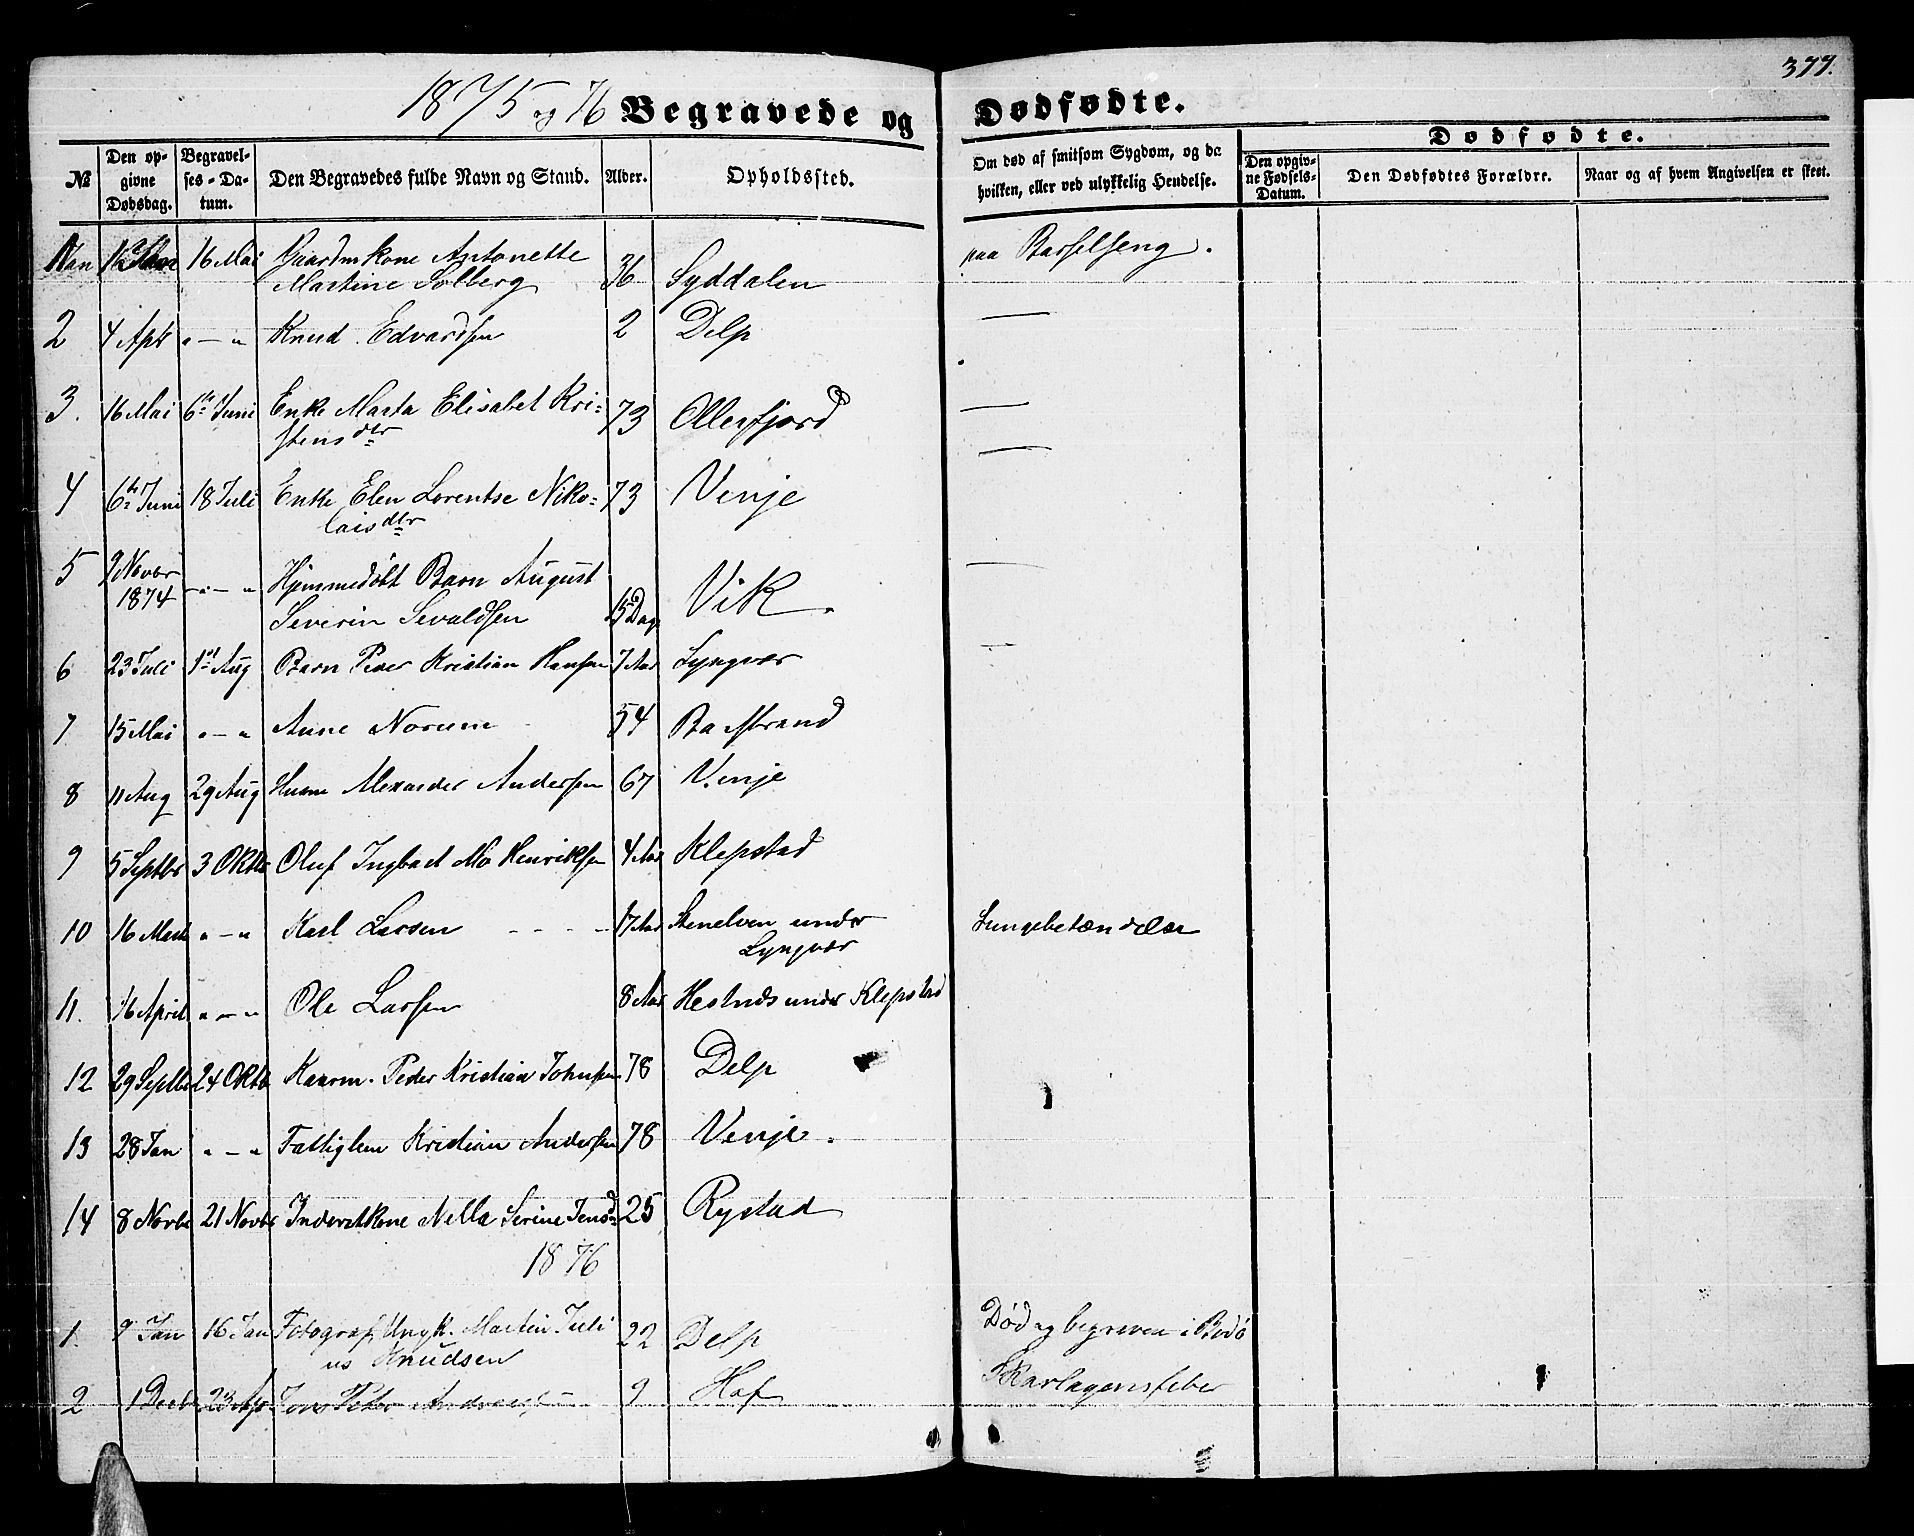 377.
1875 og 76 Begravede og Dødfødte.
№ Den opgivne Dødsdag. Begravelses-Datum. Den Begravedes fulde Navn og Stand. Alder. Opholdssted. Om død af smitsom Sygdom, og da hvilken, eller ved ulykkelig Hendelse. Dødfødte. Den opgivne Fødsels-Datum. Den Dødfødtes Forældre. Naar og af hvem Angivelsen er skeet.
16 Mai Gaardmkone Antonette paa Barselseng.
Martine Solberg 36 Syddalen
2 4 Apr " — " Knud Edvardsen 2 Delp —
3. 16 Mai 6te Juni Enke Marta Elisabet Kri- 73 Ollerfjord —
stensdtr —
4 6te Juni 18 Juli Enke Elen Lorentse Niko- 73 Venje
laisdtr
5 2 Novbr " — " Hjemmedøbt Barn August Vik. —
1874 Severin Sevaldsen 15 Dage
6 23 Juli 1st Aug Barn Peder Kristian Hansen 7 Aar Lyngvær —
7 15 Mai " — " Anne Norum 54 Ba Strand
8 11 Aug 29 Aug Husm Alexander Andersen 67 Venje
9 5 Septbr 3 Oktbr Oluf Ingbart Mo Henriksen 4 Aar Klepstad
10 16 Marts " — " Karl Larsen - - - - 17 Aar Stenelven under Lungebetændelse
Lyngvær
11. 16 April " — " Ole Larsen 8 Aar Hestnæs under Klepstad
12 29 Septbr 24 Oktb Kaarm. Peder Kristian Johnsen 78 Delp
13 28 Jan " — " Fattiglem Kristian Andersen 78 Venje.
14 8 Novbr 21 Novbr Inderstkone Nella Serine Jensd 25 Rystad
1876
1. 9 Jan 16 Jan Fotograf Ungk. Martin Juli 22 Delp Død og begraven i Bodø
us Knudsen
2 1 Decb 23 Apr Jens Peter Andreassen 9 Hof Skarlagensfeber